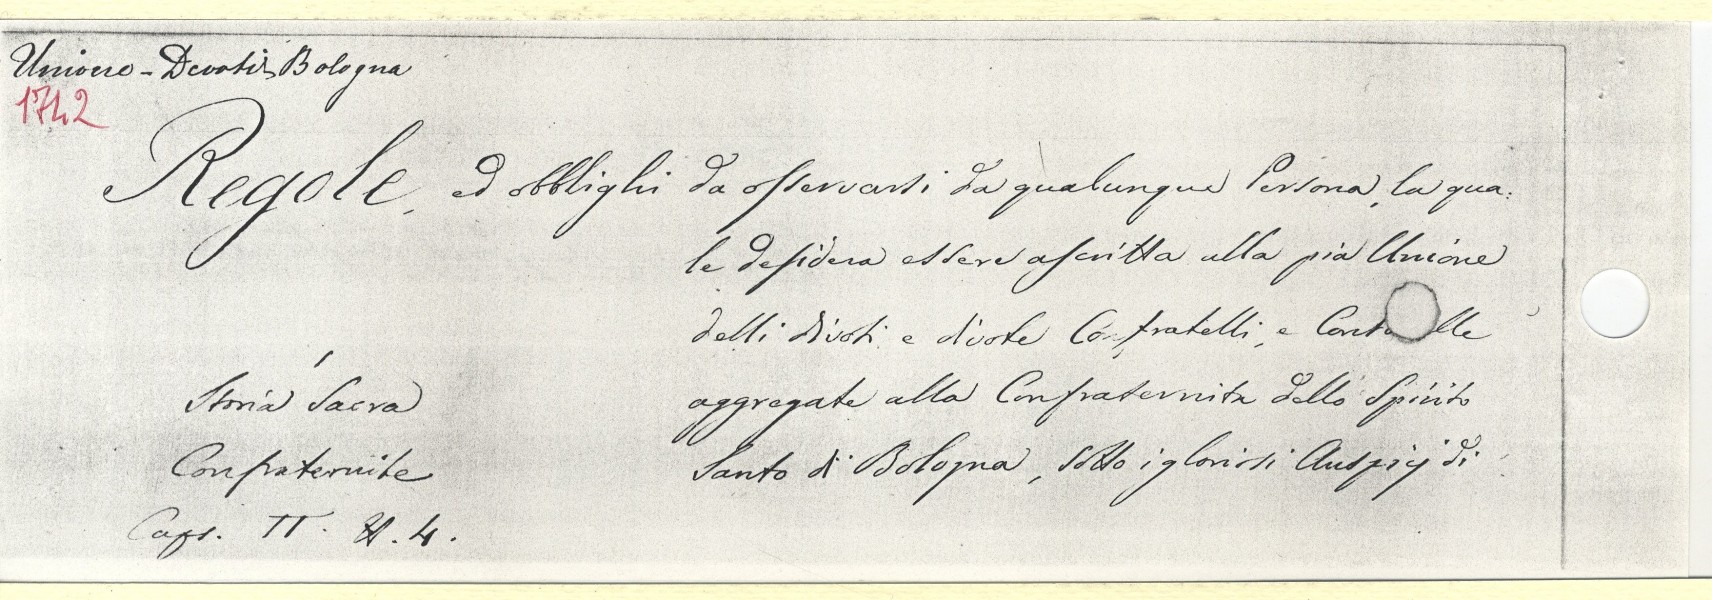 Unione - Devoti Bologna
1742
Regole, ed obblighi da osservarsi da qualunque Persona, la qua:
le desidera essere ascritta alla pia Unione
delli divoti e divote Confratelli, e
aggregate alla Confraternita dello Spirito
Santo di Bologna, sotto i gloriosi Auspicj di
Storia Sacra
Confraternite
Caps. II. N. 4.